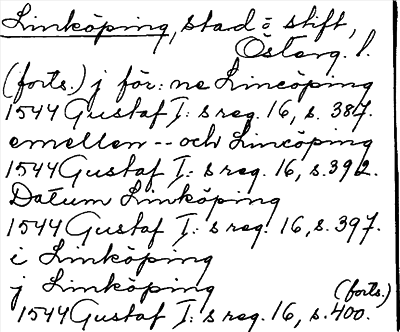 Linköping, stad o stift,
Österg. l.
(forts.) j för: ne Lincöping
1544 Gustaf I: s reg. 16, s. 387.
emellen -- och Lincöping
1544 Gustaf I: s reg. 16, s. 392.
Datum Linköping
1544 Gustaf I: s reg. 16, s. 397.
i Linköping
j Linköping
1544 Gustaf I: s reg. 16, s. 400.
(forts.)